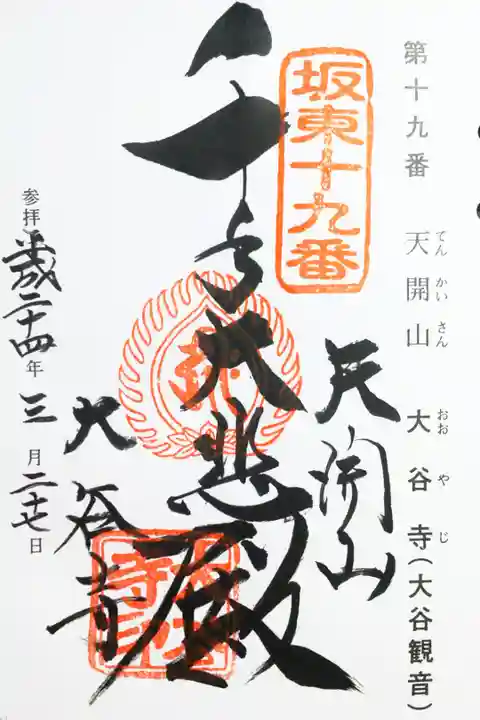 第十九番 天開山 大谷寺(大谷観音)
てん かい さん おお や じ
坂東十九番
天開山
千手大悲殿
大谷寺
参拝 平成二十四年 三月二十七日